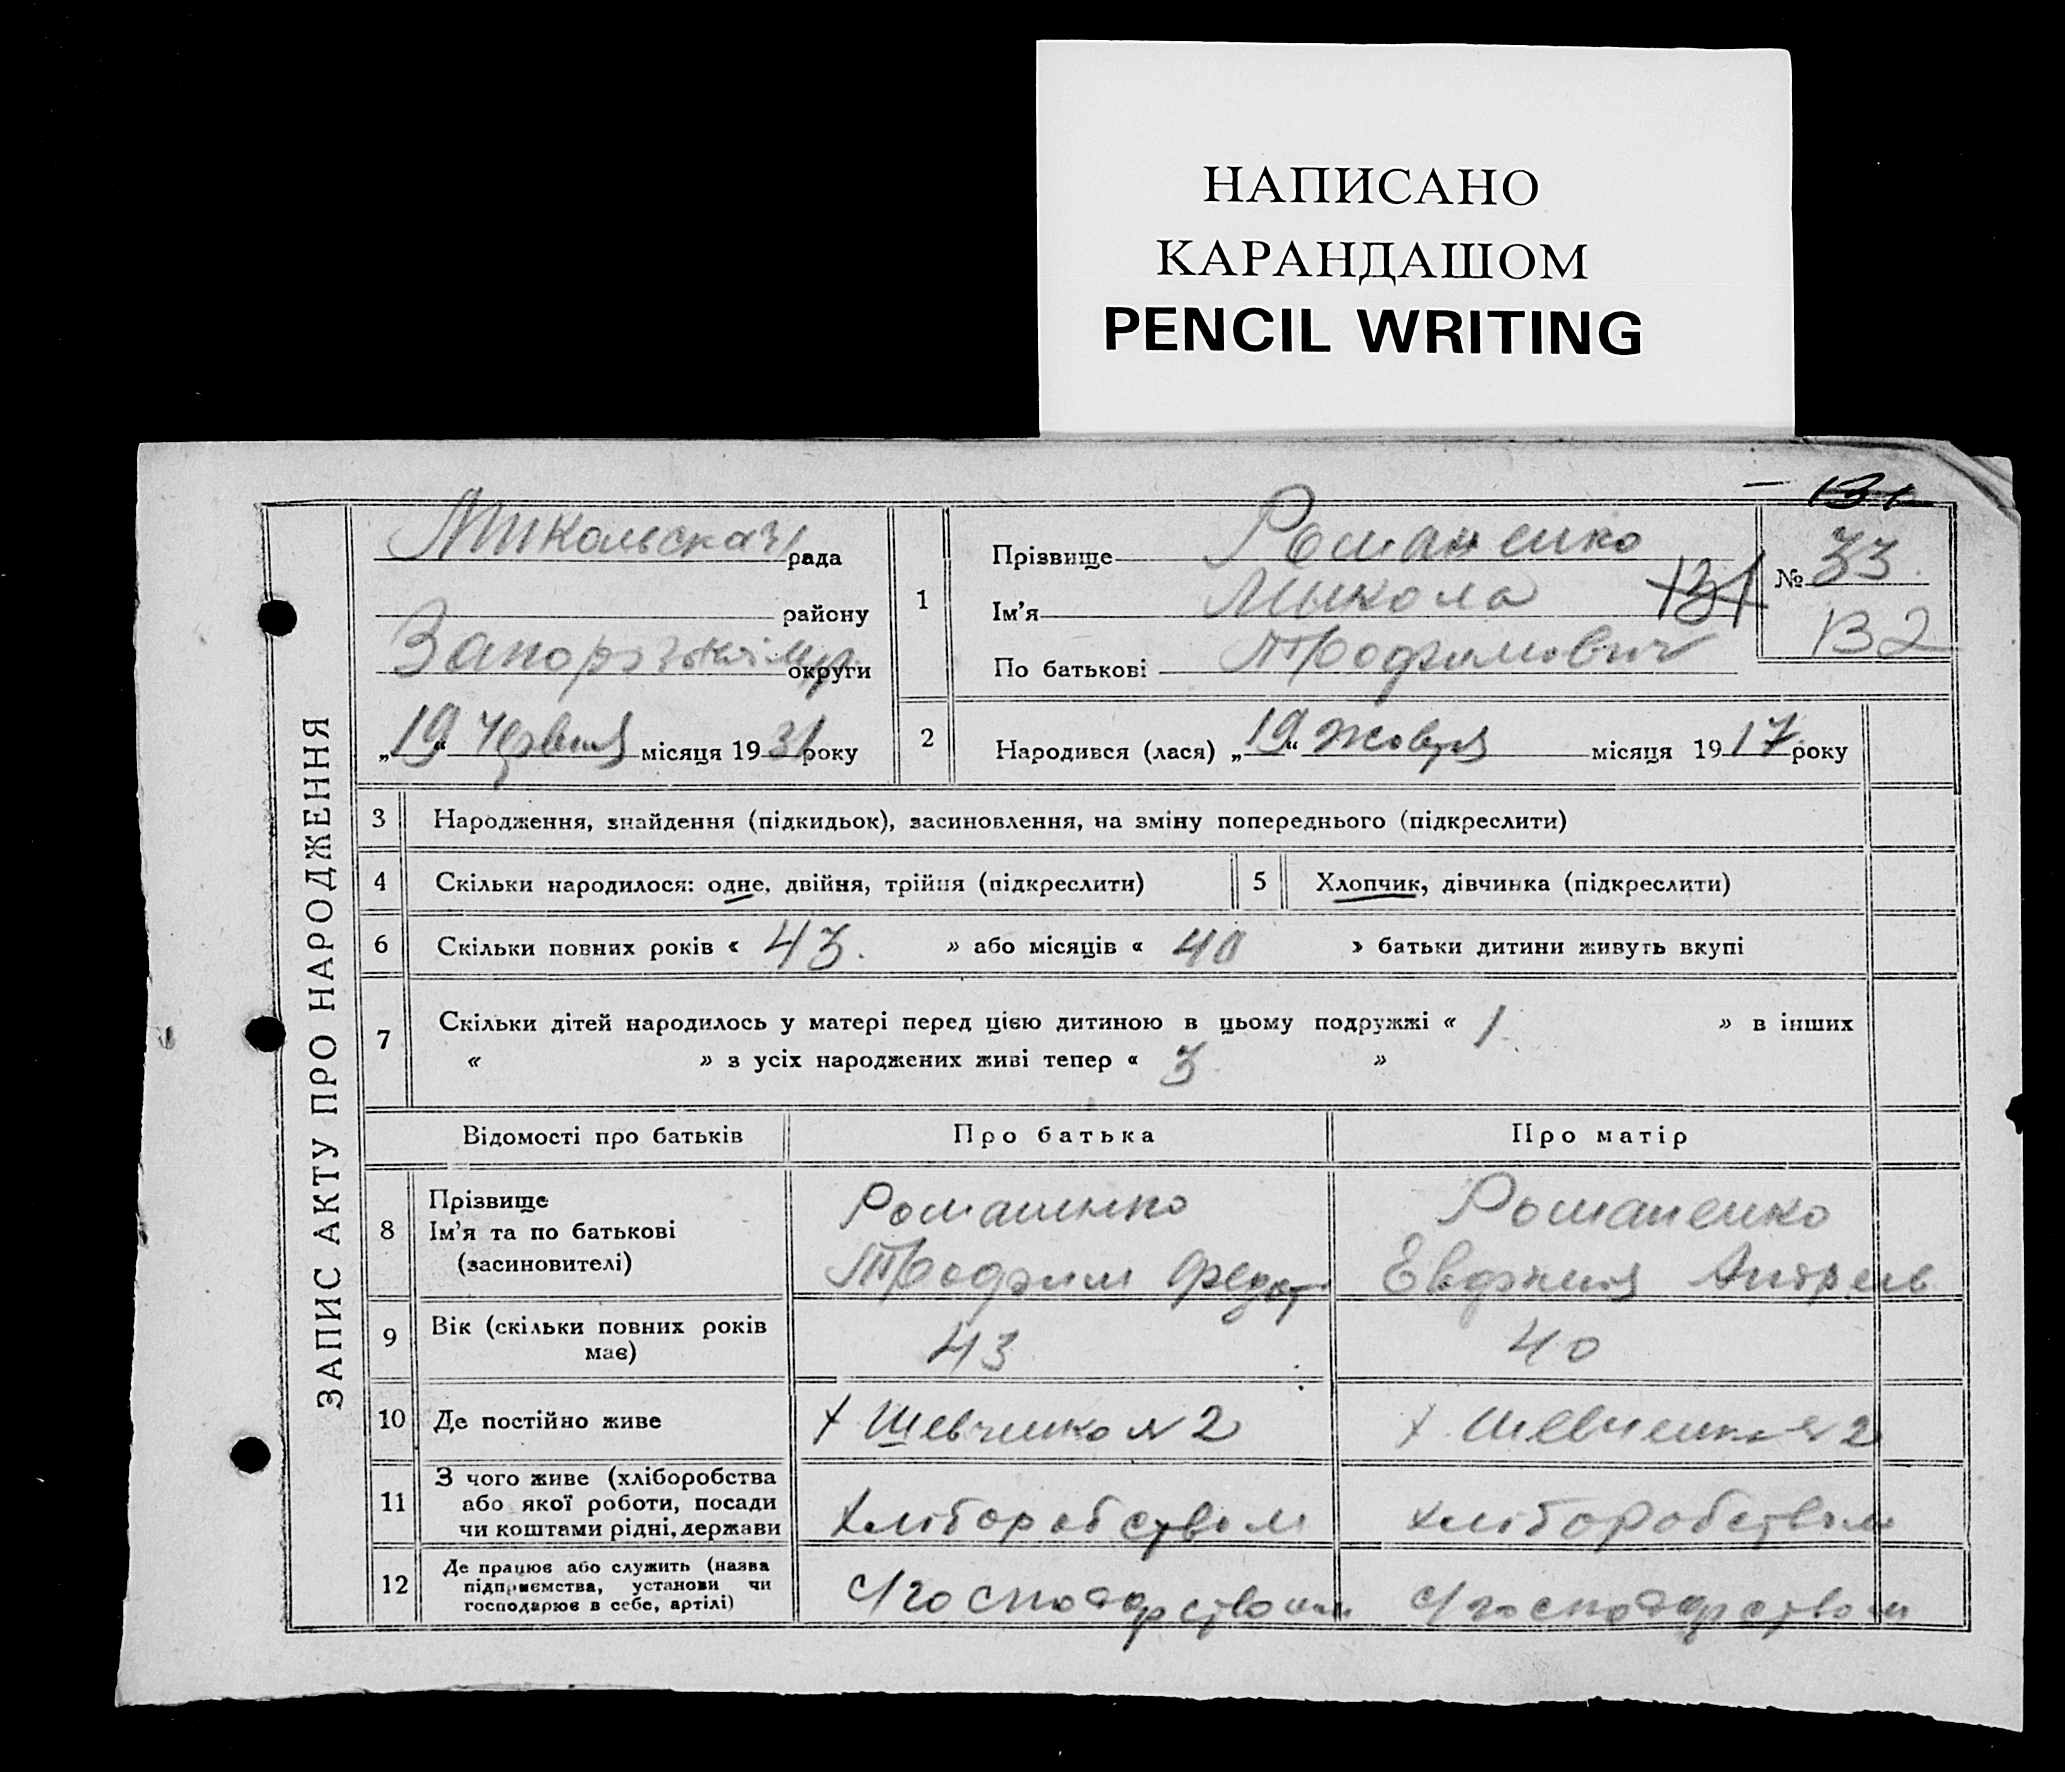 НАПИСАНО
КАРАНДАШОМ
PENCIL WRITING
131
ЗАПИС АКТУ ПРО НАРОДЖЕННЯ
Микольская рада
району
Запорізькі округи
„19“ червня місяця 1931 року
1
Прізвище Романенко
Ім’я Микола 131
По батькові Трофимович
№ 33
132
2
Народився (лася) „19“ жовтя місяця 1917 року
3 Народження, знайдення (підкидьок), засиновлення, на зміну попереднього (підкреслити)
4 Скільки народилося: одне, двійня, трійня (підкреслити)
5 Хлопчик, дівчинка (підкреслити)
6 Скільки повних років « 43. » або місяців « 40 » батьки дитини живуть вкупі
7 Скільки дітей народилось у матері перед цією дитиною в цьому подружжі « 1 » в інших
« » з усіх народжених живі тепер « 3 »
Відомості про батьків Про батька Про матір
8 Прізвище
Ім’я та по батькові
(засиновителі)
Романенко
Трофим Федот
Романенко
Евфимия Андреев
9 Вік (скільки повних років
має)
43
40
10 Де постійно живе
х Шевченко № 2
х Шевченко № 2
11 З чого живе (хліборобства
або якої роботи, посади
чи коштами рідні, держави
хліборобством
хліборобством
12 Де працює або служить (назва
підприємства, установи чи
господарює в себе, артілі)
с/господарством
с/господарством